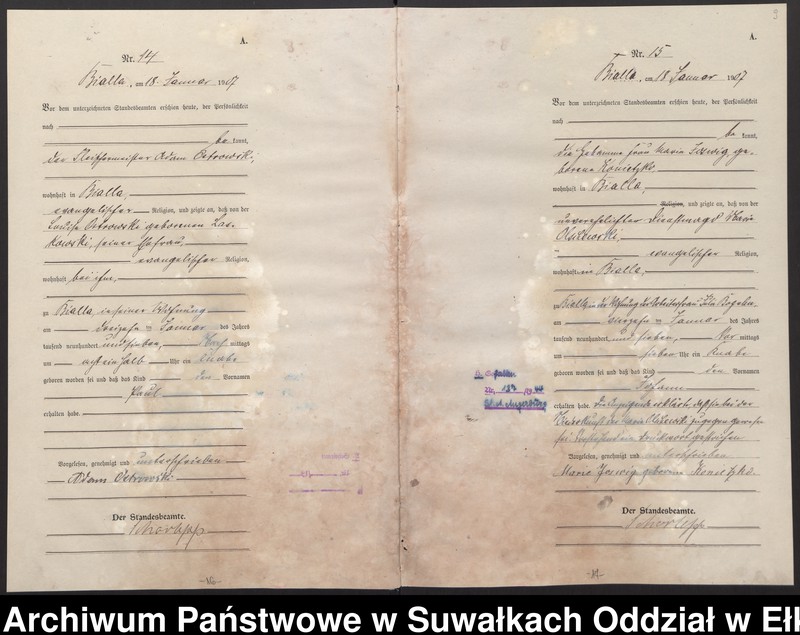 A.
Nr. 14
Bialla, am 18. Januar 1907
Vor dem unterzeichneten Standesbeamten erschien heute, der Persönlichkeit
nach
be kannt,
der Fleischermeister Adam Ostrowski,
wohnhaft in Bialla,
evangelischer Religion, und zeigte an, daß von der
Louise Ostrowski geborenen Las-
kowski, seiner Ehefrau,
evangelischer Religion,
wohnhaft bei ihm,
zu Bialla, in seiner Wohnung
am dreizehn ten Januar des Jahres
tausend neunhundert und sieben, Nach mittags
um acht ein halb Uhr ein Knabe
geboren worden sei und daß das Kind den Vornamen
Paul
erhalten habe.
Vorgelesen, genehmigt und unterschrieben
Adam Ostrowski
Der Standesbeamte.
-16-
3
A.
Nr. 15
Bialla, am 18 Januar 1907
Vor dem unterzeichneten Standesbeamten erschien heute, der Persönlichkeit
nach
be kannt,
die Hebamme Frau Marie ge-
borene
wohnhaft in Bialla,
Religion, und zeigte an, daß von der
unverehelichten Dienstmagd Marie
evangelischer Religion,
wohnhaft in Bialla,
zu Bialla, in der Wohnung der Arbeiterfrau
am vierzehn ten Januar des Jahres
tausend neunhundert und sieben, Vor mittags
um sieben Uhr ein Knabe
geboren worden sei und daß das Kind den Vornamen
Johann
erhalten habe. Die Anzeigende erklärt, daß sie bei der
Niederkunft der Marie zugegen gewesen
sei
Vorgelesen, genehmigt und unterschrieben
Marie geborene
Der Standesbeamte.
Archiwum Państwowe w Suwałkach Oddział w Eł